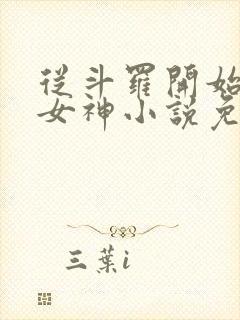 從斗羅開始
女神小說免
三葉i